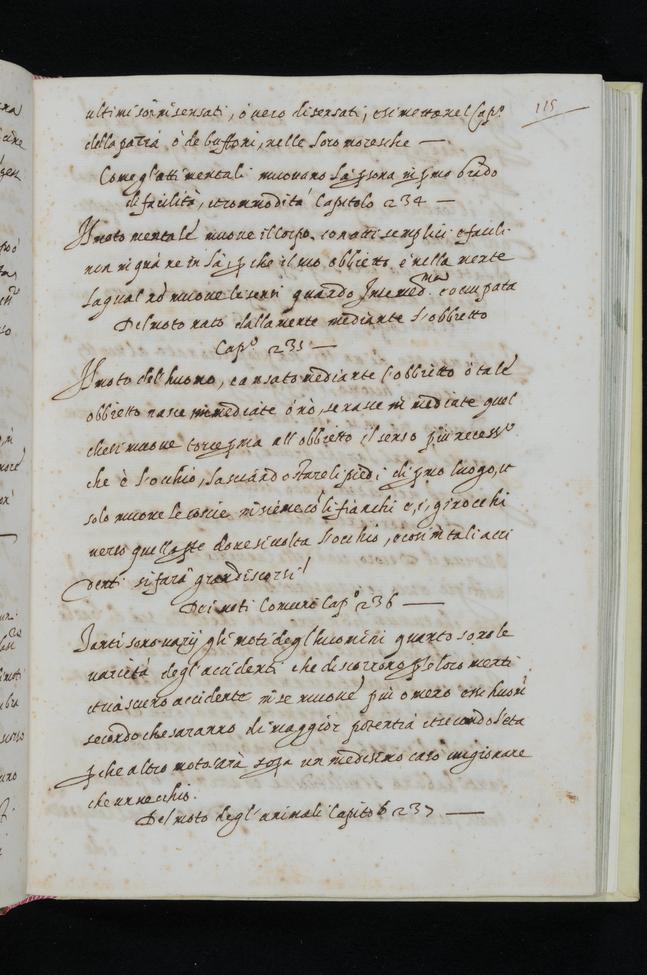 115
ultimi son insensati, ò vero disensati, et si mettono nel Cap.º
della pazzia ò de buffoni, nelle loro moresche —
Come gl'atti mentali muovano la persona in primo grado
di facilità, et commodità Capitolo 234 —
Il moto mentale muove il corpo con atti semplici e facili
non in qua ne in là, perche il suo obbietto è nella mente
la qual nò muove le sensi quando In se med.ma è occupata
Del moto nato dalla mente mediante l'obbietto
Cap.º 235 —
Il moto del'huomo, causato mediante l'obbietto ò tal'è
obbietto nasce immediate ò nò, se nasce immediate quel
che si muove torce prima all'obbietto il senso piu necess.º
che è l'occhio, lasciando stare li piedi al primo luogo, et
solo muove le coscie insieme cò li fianchi e, i, ginocchi
verso quella pte dove si volta l'occhio, e cosi in tali acci
denti si farà gran discorsi!
Dei moti Comuni Cap.º 236 —
Tanti sono varij gli moti degl'huomini quanto sono le
varietà degl'accidenti che discorrono p le loro menti
et ciascuno accidente in se muove piu o meno essi huoñi
secondo che saranno di maggior potentia et secondo l'eta
p che altro moto farà sopra un medesimo caso un giovane
che un vecchio.
Del moto degl'animali Capitolo 237 —